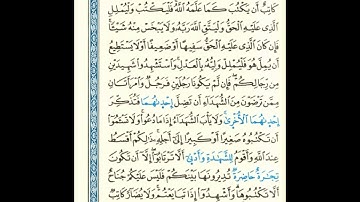 كَاتِبٌ أَن يَكْتُبَ كَمَا عَلَّمَهُ اللَّهُ فَلْيَكْتُبْ وَلْيُمْلِلِ
الَّذِي عَلَيْهِ الْحَقُّ وَلْيَتَّقِ اللَّهَ رَبَّهُ وَلَا يَبْخَسْ مِنْهُ شَيْئًا
فَإِن كَانَ الَّذِي عَلَيْهِ الْحَقُّ سَفِيهًا أَوْ ضَعِيفًا أَوْ لَا يَسْتَطِيعُ
أَن يُمِلَّ هُوَ فَلْيُمْلِلْ وَلِيُّهُ بِالْعَدْلِ وَاسْتَشْهِدُوا شَهِيدَيْنِ
مِن رِّجَالِكُمْ فَإِن لَّمْ يَكُونَا رَجُلَيْنِ فَرَجُلٌ وَامْرَأَتَانِ
مِمَّن تَرْضَوْنَ مِنَ الشُّهَدَاءِ أَن تَضِلَّ إِحْدَىٰهُمَا فَتُذَكِّرَ
إِحْدَىٰهُمَا الْأُخْرَىٰ وَلَا يَأْبَ الشُّهَدَاءُ إِذَا مَا دُعُوا وَلَا تَسْـَٔمُوا
أَن تَكْتُبُوهُ صَغِيرًا أَوْ كَبِيرًا إِلَىٰ أَجَلِهِ ذَٰلِكُمْ أَقْسَطُ
عِندَ اللَّهِ وَأَقْوَمُ لِلشَّهَٰدَةِ وَأَدْنَىٰ أَلَّا تَرْتَابُوا إِلَّا أَن تَكُونَ
تِجَٰرَةً حَاضِرَةً تُدِيرُونَهَا بَيْنَكُمْ فَلَيْسَ عَلَيْكُمْ جُنَاحٌ
أَلَّا تَكْتُبُوهَا وَأَشْهِدُوا إِذَا تَبَايَعْتُمْ وَلَا يُضَارَّ كَاتِبٌ